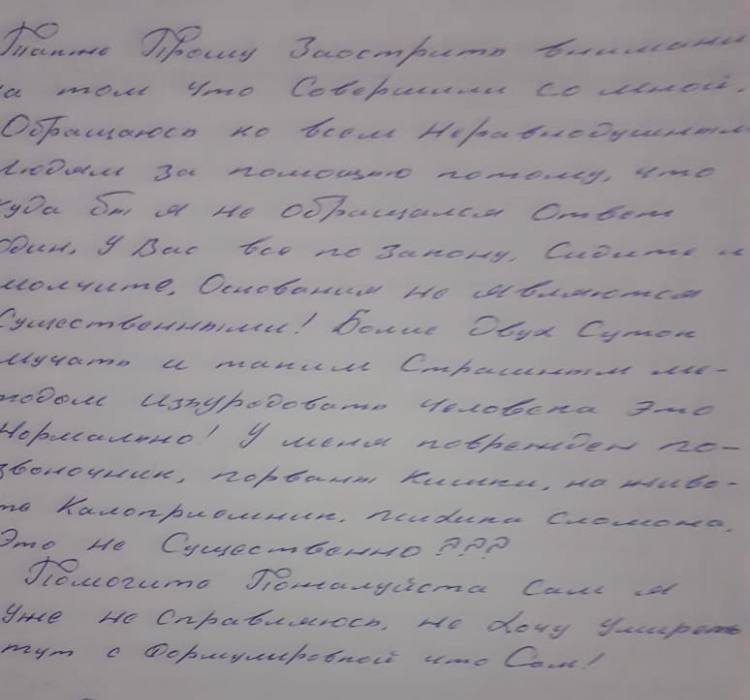 Также Прошу Заострить внимани
а том что Совершили со мной.
Обращаюсь ко всем Неравнодушным
людям за помощью потому, что
куда бы я не обращался Ответ
один. У Вас все по закону. Сидите и
молчите. Основания не являются
Существенными! Более Двух Суток
мучать и таким Страшным ме-
тодом изуродовать человека это
Нормально! У меня поврежден по-
звоночник, порваны Кишки, на живо-
те Калоприемник. психика сломана.
Это не Существенно???
Помогите Пожалуйста Сам я
уже не справляюсь, не хочу умирать
тут с Формулировкой что Сам!